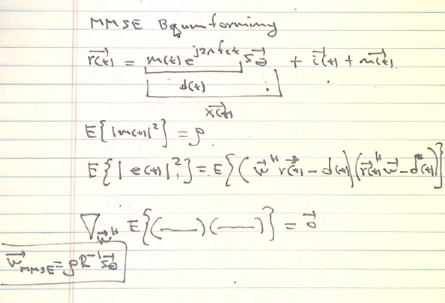 MMSE Beamforming
r⃗(t) = m(t) e^{j2πf_c t} s⃗_θ + i⃗(t) + n⃗(t)
d(t)
x⃗(t)
E{|m(t)|²} = ρ
E{|e(t)|²} = E{(w⃗^H r⃗(t) - d(t))(r⃗(t)^H w⃗ - d*(t))}
∇_{w⃗^H} E{(——)(——)} = 0⃗
w⃗_MMSE = ρR^{-1} s⃗_θ